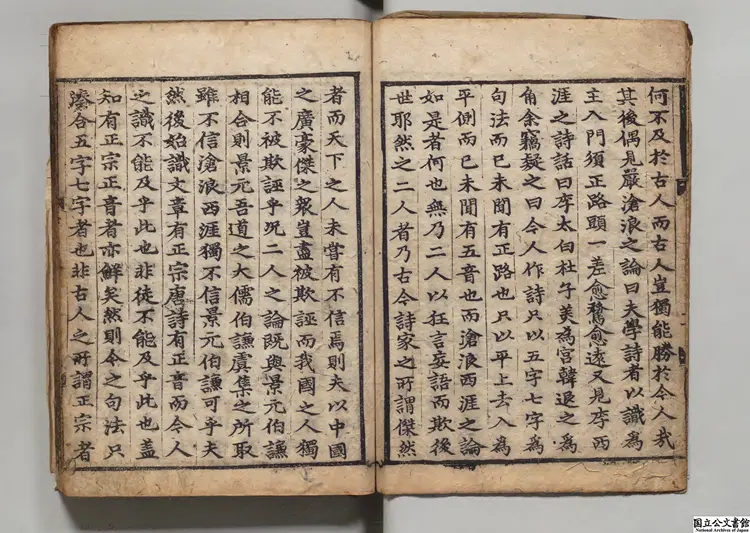 何不及於古人而古人豈獨能勝於今人哉
其後偶見嚴滄浪之論曰夫學詩者以識為
主入門須正路頭一差愈騖愈遠又見李西
涯之詩話曰李太白杜子美為宮韓退之為
角余竊疑之曰今人作詩只以五字七字為
句法而已未聞有正路也只以平上去入為
平側而已未聞有五音也而滄浪西涯之論
如是者何也無乃二人以狂言妄語而欺後
世耶然之二人者乃古今詩家之所謂傑然
者而天下之人未嘗有不信焉則夫以中國
之廣豪傑之衆豈盡被欺誣而我國之人獨
能不被欺誣乎况二人之論既與景元伯謙
相合則景元吾道之大儒伯謙虞集之所取
雖不信滄浪西涯獨不信景元伯謙可乎夫
然後始識文章有正宗唐詩有正音而今人
之識不能及乎此也非徒不能及乎此也盖
知有正宗正音者亦鮮矣然則今之句法只
湊合五字七字者也非古人之所謂正宗者
国立公文書館
National Archives of Japan